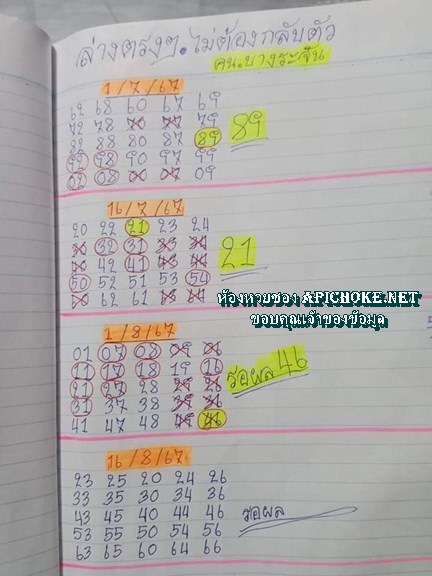 ล่างตรงๆ.ไม่ต้องกลับตัว
คน.บางระจัน
1/7/67
62 68 60 67 69
72 78 70 77 79
82 88 80 87 89 89
92 98 90 97 99
02 08 00 07 09
16/7/67
20 22 21 23 24
30 32 31 33 34 21
40 42 41 43 44
50 52 51 53 54
60 62 61 63 64
ห้องหวยซอง APICHOKE.NET
ขอบคุณเจ้าของข้อมูล
1/8/67
01 07 08 09 06
11 17 18 19 16 รอผล 46
21 27 28 29 26
31 37 38 39 36
41 47 48 49 46
16/8/67
23 25 20 24 26
33 35 30 34 36
43 45 40 44 46 รอผล
53 55 50 54 56
63 65 60 64 66